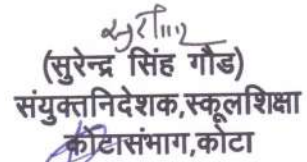 (सुरेन्द्र सिंह गौड)
संयुक्तनिदेशक,स्कूलशिक्षा
कोटासंभाग,कोटा